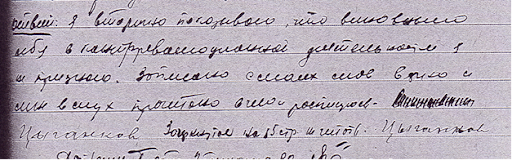 ответ: Я вторично показываю, что виновным
себя в контрреволюционной деятельности я
не признаю. Записано с моих слов верно и
мне вслух прочитано в чем и расписуюсь.
Цыганков Зачеркнутое не Цыганков